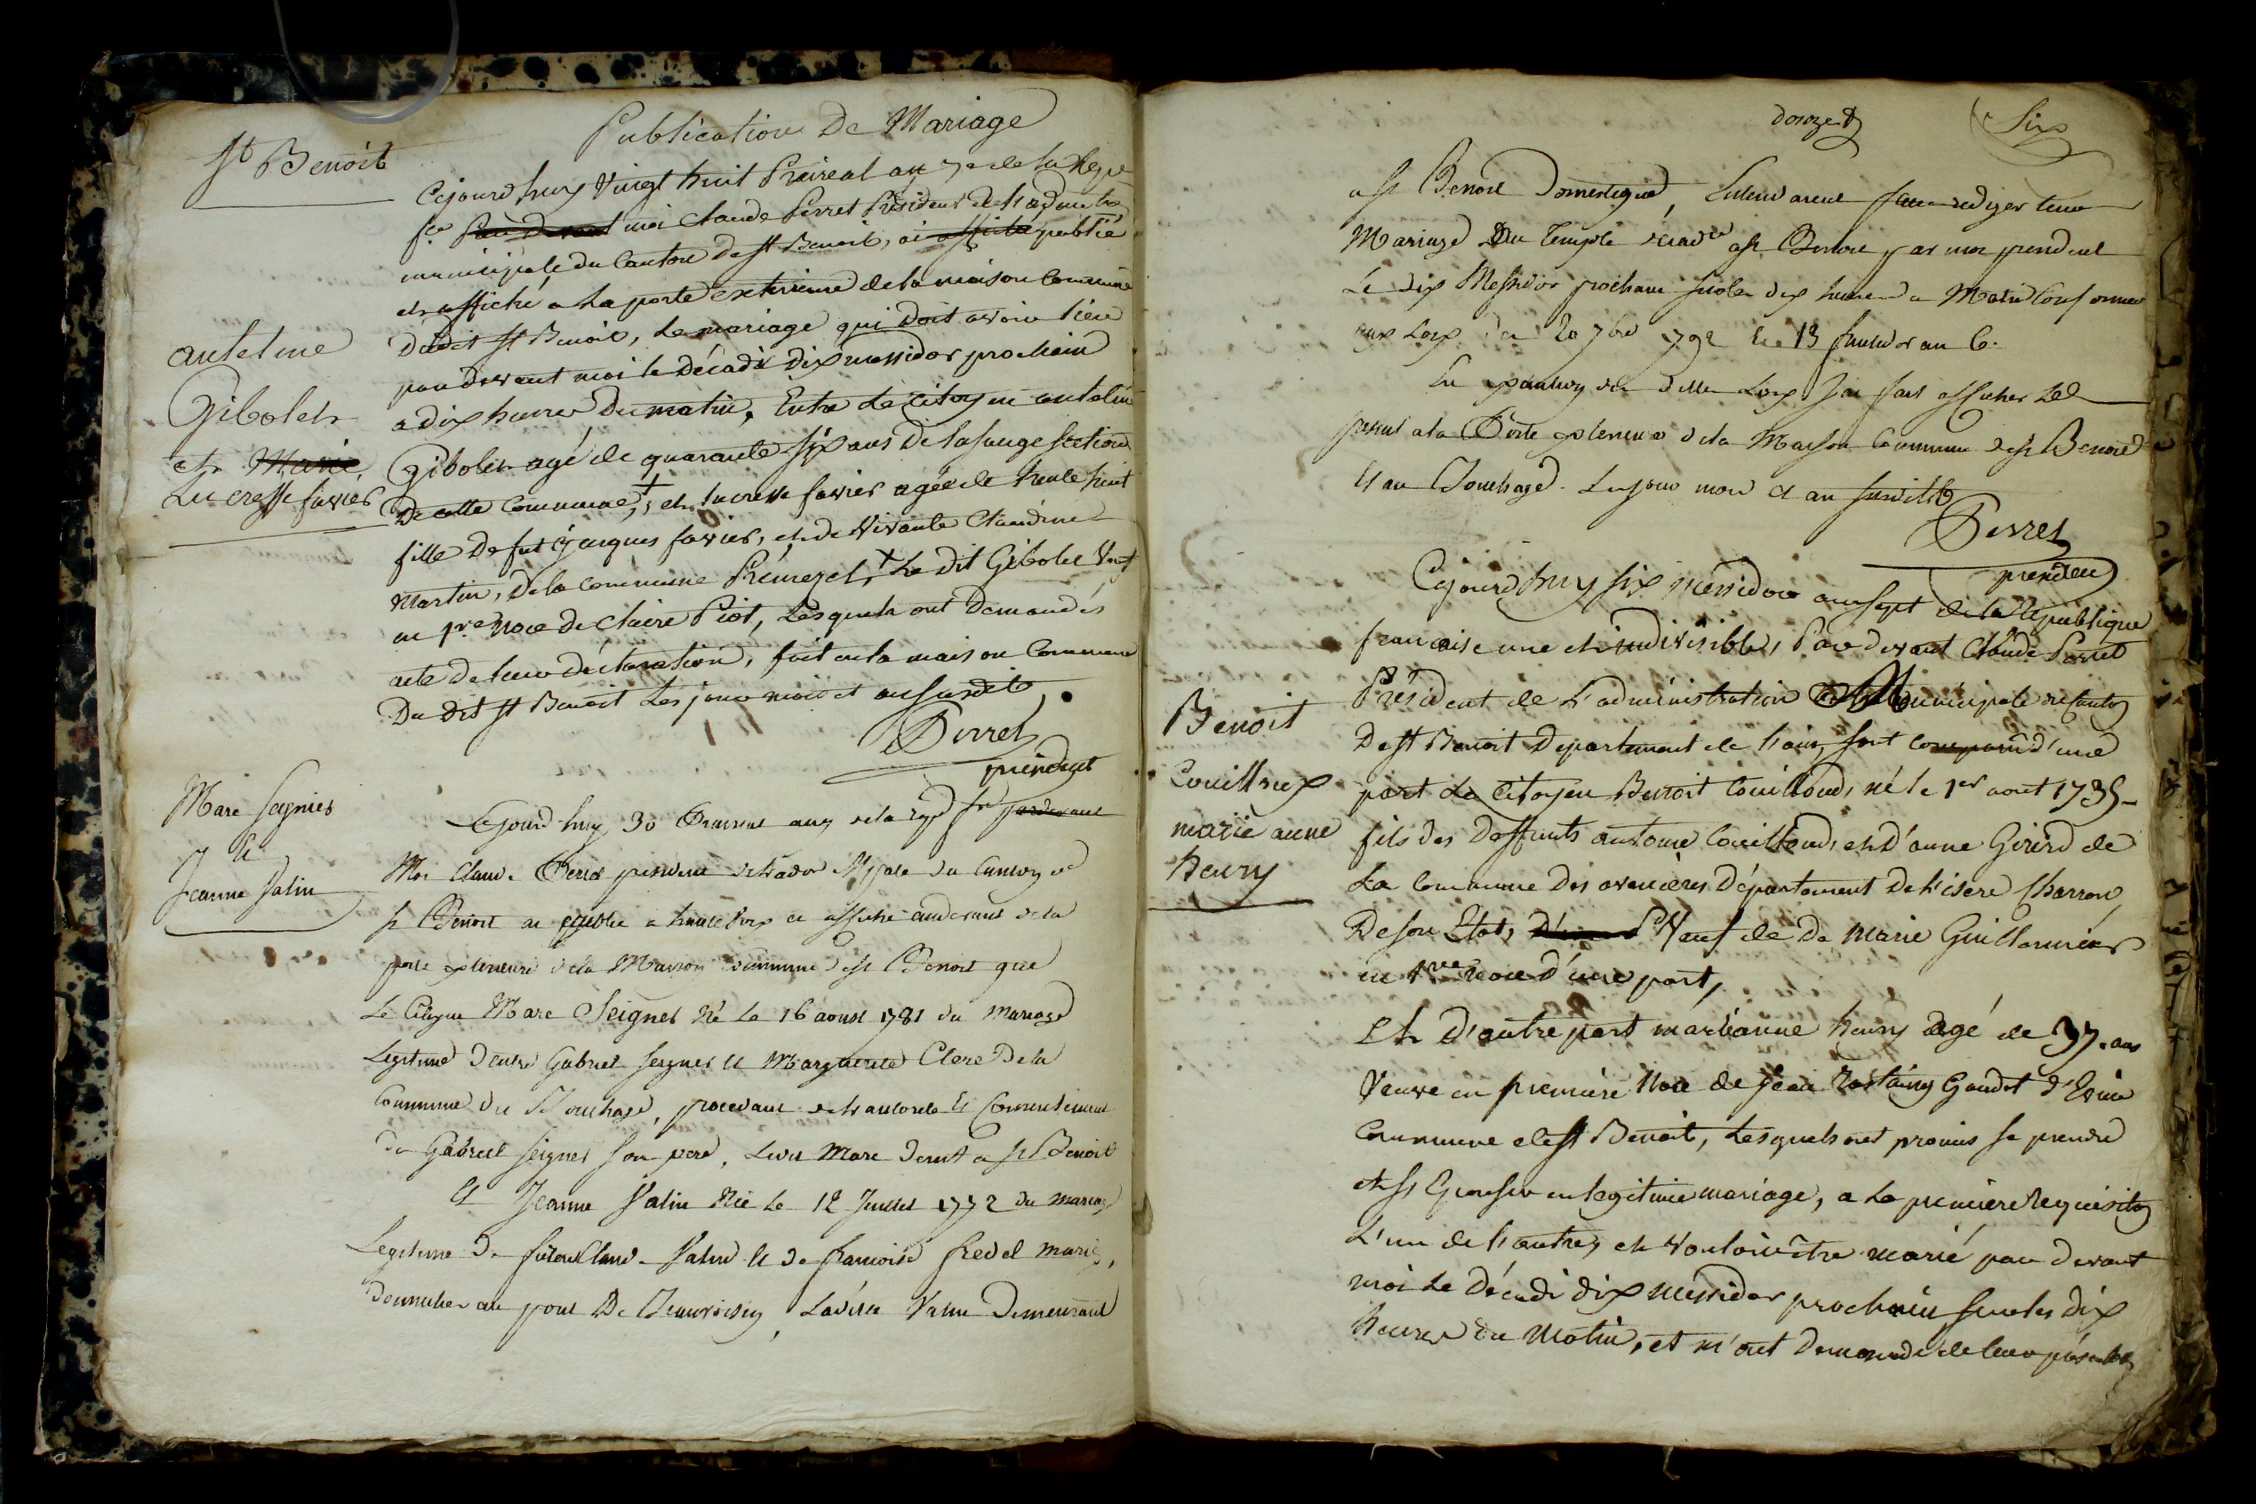 Publication De Mariage
St Benoit
Cejourdhuy Vingt huit Praireal an 7e de la Repu
fse Par Devant moi Claude Perret President de L'adm
municipale du Canton de St Benoit, ai affiché publié
et affiché a la porte exterieure de la maison Commune
Dudit St Benoit, Le mariage qui doit avoir lieu
par devant moi le Décadi dix messidor prochain
a dix heures Du matin, Entre Le Citoyen antelme
antelme
Gibolet
et Marie
Lucresse favier
Gibolet agé de quarante six ans De la Section
De cette Commune, et Lucresse favier agée de trente huit
fille De fut Jacques favier, et de Vivante Claudine
Martin, De la Commune Prémezel, Le dit Gibolet Veuf
en 1re Noce de Claire Piot, Lesquels ont Demandés
acte de leur déclaration, fait en la maison Commune
Du dit St Benoit Les jour mois et an susdits.
Perret
président
Marc Seignier
Et
Jeanne Salin
Cejourdhuy 30 an 7 de la Rep fr pardevant
Moi Claude Perret president de L'adon Mpale du Canton de
St Benoit ai publié a haute Voix et affiché audevant de la
porte exterieure de la Maison Commune de St Benoit que
Le Citoyen Marc Seignet Né Le 16 aoust 1781 du Mariage
Legitime D'entre Gabriel Seignet et Marguerite Clerc De la
Commune du Bouchage, procedant de L'autorité Et Consentement
De Gabriel Seignet Son pere, Ledit Marc demt a St Benoit
Et Jeanne Salin Née Le 12 Juillet 1772 du mariage
Legitime De Claude Salin Et de françoise fredel mariés,
Domicilies au pont De Beauvoisin, Ladite Salin Demeurant
donze
Six
a St Benoit Domestique, faire rediger leur
Mariage Au Temple decadre a St Benoit par moi president
Le dix Messidor prochain sur les dix heures du Matin Conformement
aux Loix du 20 7bre 1792 Et 13 fructidor an 6.
En des dittes Loix J'ai fait afficher Le
present a la Porte exterieure de la Maison Commune de St Benoit
Et au Bouchage. Les jour mois et an susdits
Perret
president
Cejourdhuy six messidor an sept de la République
française une et indivisible, Par devant Claude Perret
Président de L'administration Municipale du canton
De St Benoit Departement de L'ain, sont comparu d'une
part Le Citoyen Benoit Couilloud, né le 1er aout 1735
Benoit
Couilloux
marie anne
henry
fils des Deffunts antoine Couilloud, et d'anne Girerd de
La Commune des avenières Département De L'isere Charron
De son Etat, Veuf de De Marie Guillermier
en 1re noce d'une part,
Et D'autre part marianne henry agé de 37. ans
Veuve en première Noce de Jean Rostaing Gaudet d'Evieu
Commune de St Benoit, Lesquels ont promis se prendre
et s'Epouser en legitime mariage, a La premiere Requisiton
L'un de L'autre, et Vouloir être marié par devant
moi Le Décadi dix messidor prochain sur les dix
heures du Matin, et m'ont Demandé de leur présentes